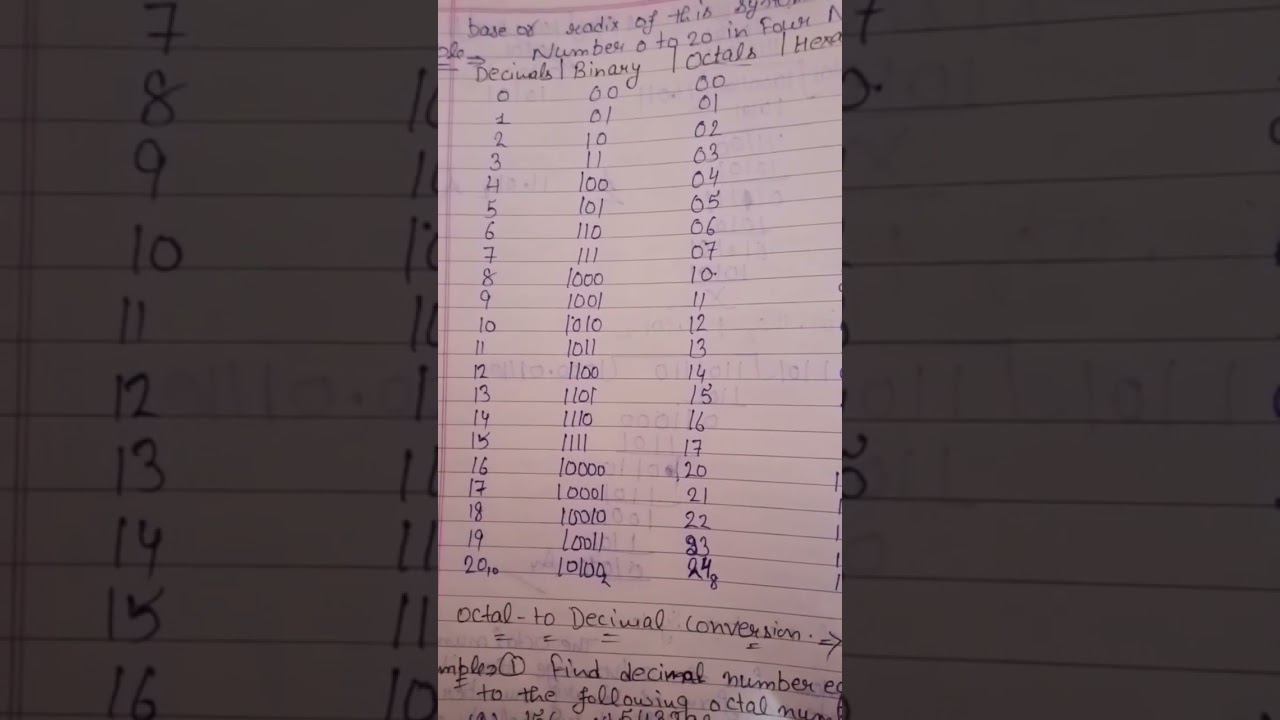 base or radix of this
Number 0 to 20 in Four
Decimals | Binary | Octals | Hexa
0 00 00
1 01 01
2 10 02
3 11 03
4 100 04
5 101 05
6 110 06
7 111 07
8 1000 10
9 1001 11
10 1010 12
11 1011 13
12 1100 14
13 1101 15
14 1110 16
15 1111 17
16 10000 20
17 10001 21
18 10010 22
19 10011 23
20₁₀ 10100₂ 24₈
octal - to Decimal Conversion. ⇒
① find decimal number
to the following octal